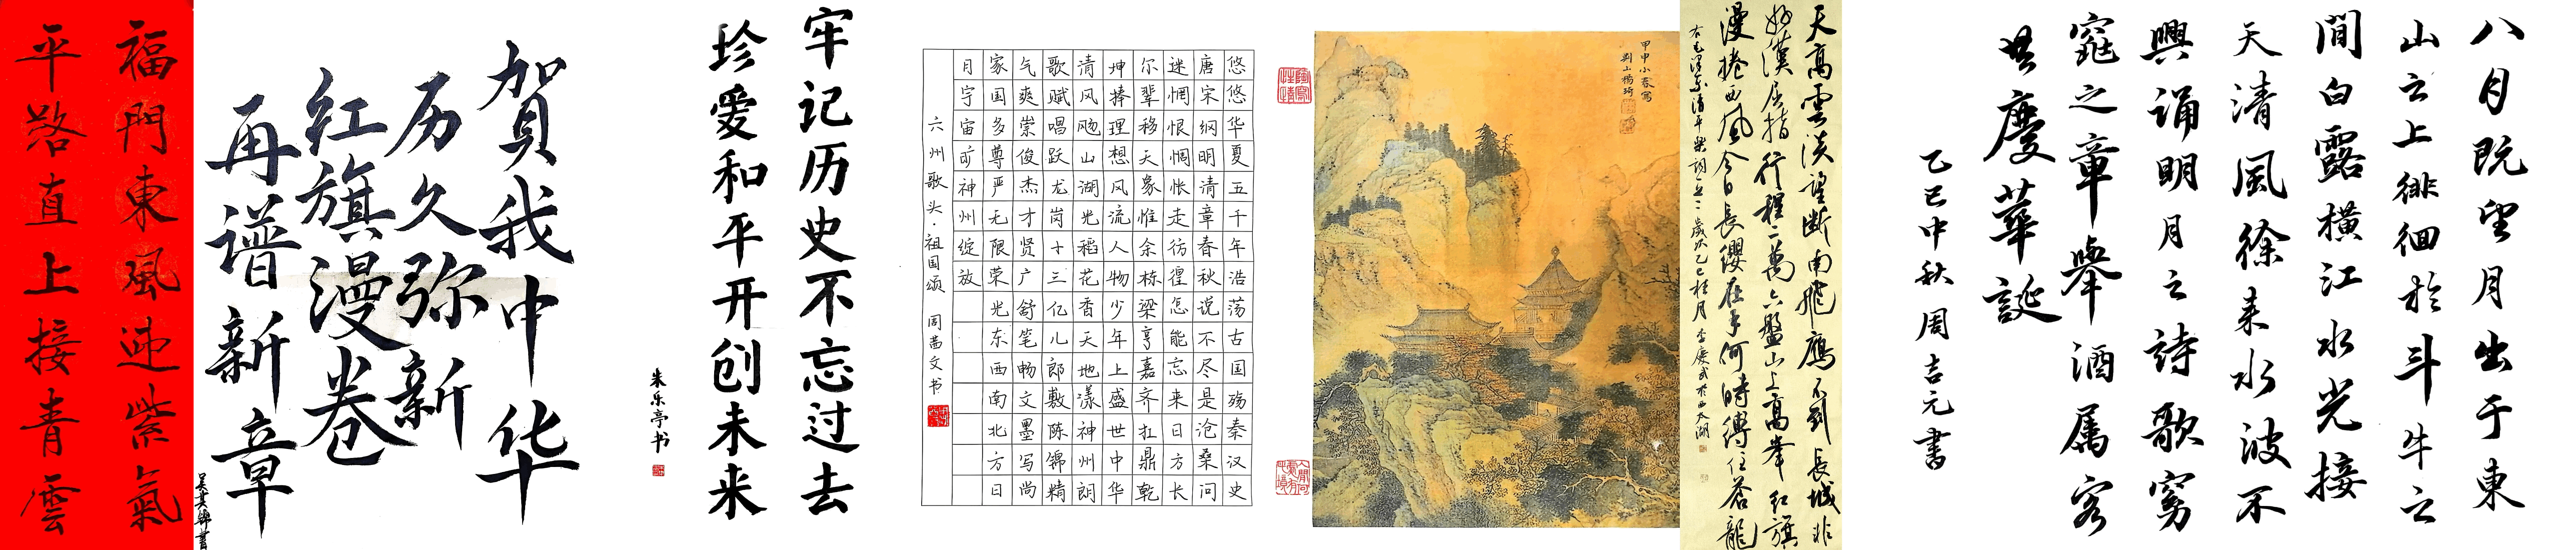 福門東風迎紫氣
平路直上接青雲
賀我中华
历久弥新
红旗漫卷
再谱新章
牢记历史不忘过去
珍爱和平开创未来
朱乐亭书
悠悠华夏五千年浩荡古国殇秦汉史
唐宋纲明清章春秋说不尽是沧桑问
迷惘恨惆怅走彷徨怎能忘来日方长
尔辈移天象惟余栋梁亨嘉齐扛鼎乾
坤捧理想风流人物少年上盛世中华
清风飏山湖光稻花香天地漾神州朗
歌赋唱跃龙岗十三亿儿郎敷陈锦精
气爽崇俊杰才贤广舒笔畅文墨写尚
家国多尊严无限荣光东西南北方日
月宇宙旷神州绽放
六州歌头·祖国颂 周茜文书
甲申小春寫
天高雲淡望断南飛鴈不到長城非
好漢屈指行程二萬六盤山上高峯紅旗
漫捲西風今日長纓在手何時缚住蒼龍
八月既望月出于東
山之上徘徊於斗牛之
間白露橫江水光接
天清風徐来水波不
興誦明月之詩歌窈
窕之章舉酒属客
共慶華誕
乙巳中秋周吉元書